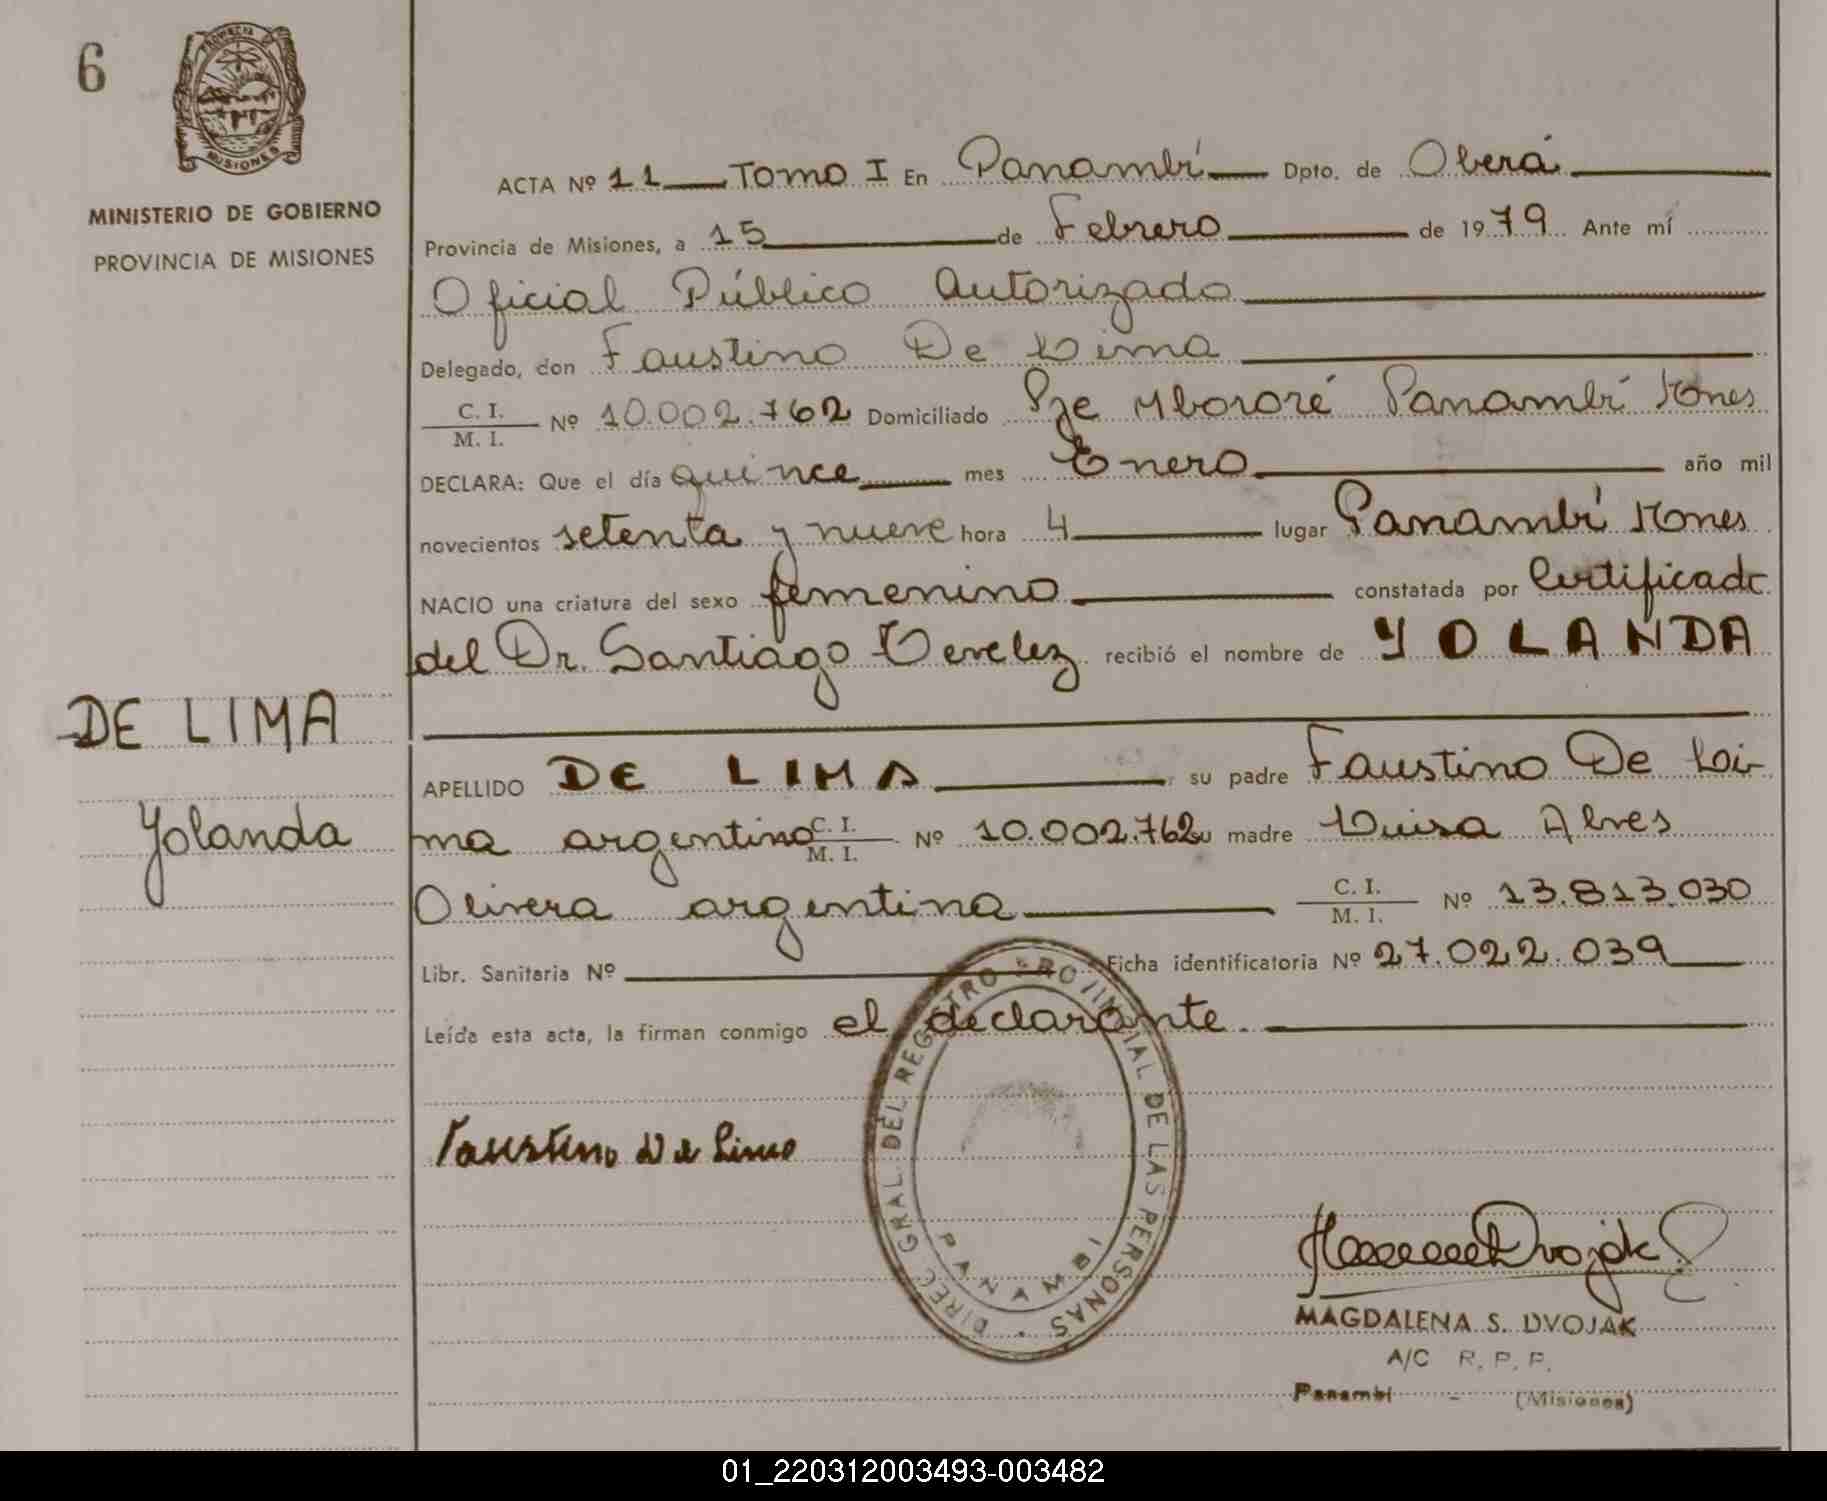 6
PROVINCIA DE
MISIONES
MINISTERIO DE GOBIERNO
PROVINCIA DE MISIONES
DE LIMA
Yolanda
ACTA Nº 11 Tomo I En Panambí Dpto. de Oberá
Provincia de Misiones, a 15 de Febrero de 1979 Ante mí
Oficial Público Autorizado
Delegado, don Faustino De Lima
C. I.
M. I. Nº 10.002.762 Domiciliado Pje Mbororé Panambí Mnes
DECLARA: Que el día quince mes Enero año mil
novecientos setenta y nueve hora 4 lugar Panambí Mnes
NACIO una criatura del sexo femenino constatada por Certificado
del Dr. Santiago recibió el nombre de YOLANDA
APELLIDO DE LIMA su padre Faustino De Li-
ma argentino C. I.
M. I. Nº 10.002.762 su madre Luisa Alves
Olivera argentina C. I.
M. I. Nº 13.813.030
Libr. Sanitaria Nº Ficha identificatoria Nº 27.022.039
Leída esta acta, la firman conmigo el declarante
Faustino De Lima
DIREC. GRAL. DEL REGISTRO PROVINCIAL DE LAS PERSONAS
PANAMBI
Dvojak
MAGDALENA S. DVOJAK
A/C R. P. P.
Panambí - (Misiones)
01_220312003493-003482